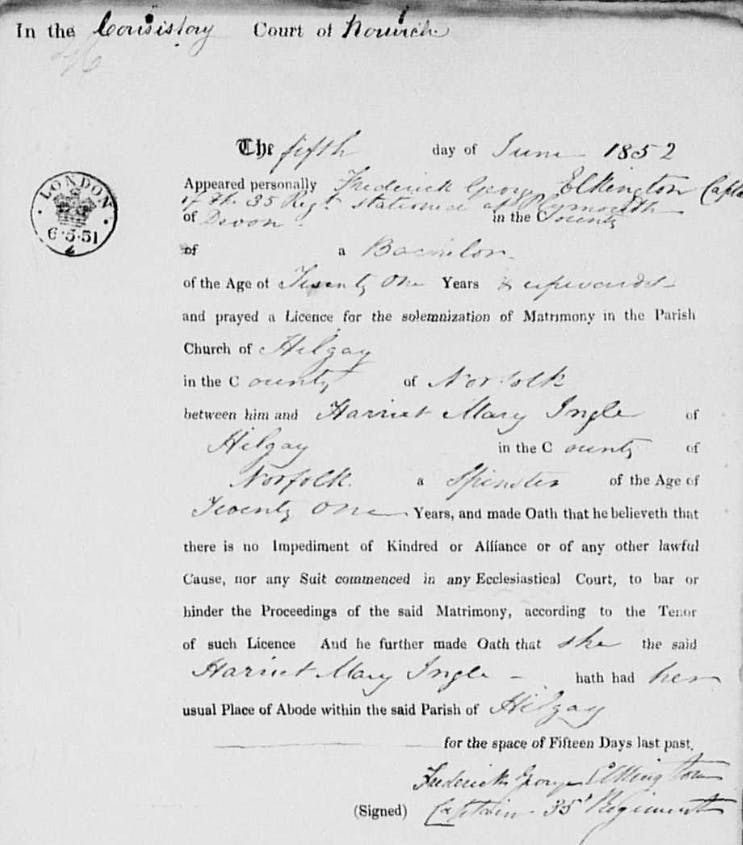 In the Consistory Court of Norwich
The fifth day of June 1852
LONDON
6·5·51
Appeared personally Frederick George Elkington Capta
of the 35 Regt. stationed at Plymouth
of Devon in the County
of a Bachelor
of the Age of Twenty One Years & upwards
and prayed a Licence for the solemnization of Matrimony in the Parish
Church of Hilgay
in the County of Norfolk
between him and Harriet Mary Ingle of
Hilgay in the County of
Norfolk a Spinster of the Age of
Twenty One Years, and made Oath that he believeth that
there is no Impediment of Kindred or Alliance or of any other lawful
Cause, nor any Suit commenced in any Ecclesiastical Court, to bar or
hinder the Proceedings of the said Matrimony, according to the Tenor
of such Licence And he further made Oath that she the said
Harriet Mary Ingle - hath had her
usual Place of Abode within the said Parish of Hilgay
for the space of Fifteen Days last past.
Frederick George Elkington
(Signed) Captain 35t Regiment